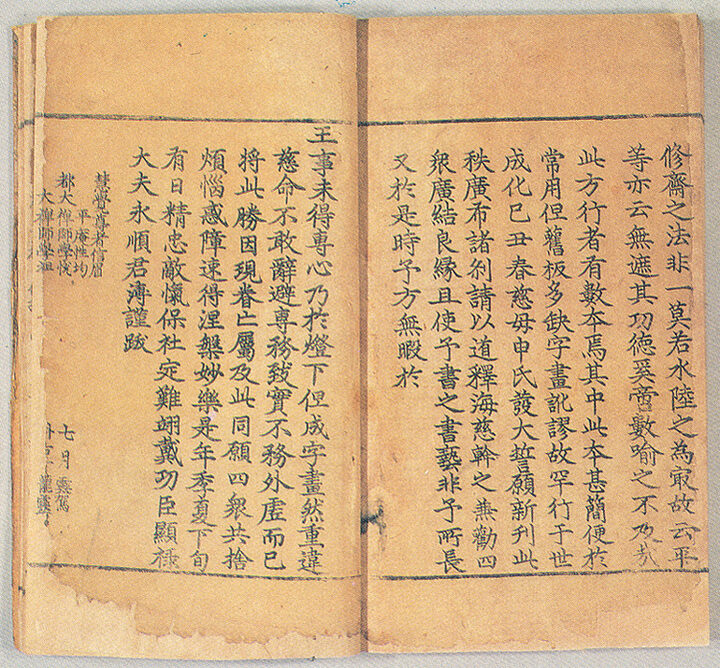 修齋之法非一莫若水陸之為冣故云平
等亦云無遮其功德奚啻數喻之不及哉
此方行者有數本焉其中此本甚簡便於
常用但舊板多缺字畫訛謬故罕行于世
成化己丑春慈母申氏發大誓願新刊此
秩廣布諸刹請以道釋海慈幹之兼勸四
衆廣結良縁且使予書之書藝非予所長
又於是時予方無暇於
王事未得專心乃於燈下但成字畫然重違
慈命不敢辭避專務致實不務外虛而已
將此勝因現眷亡屬及此同願四衆共捨
煩惱惑障速得涅槃妙樂是年季夏下旬
有日精忠敵愾保社定難翊戴功臣顯祿
大夫永順君溥謹跋
慧覺尊者信眉
平庵性均
都大禪師學悅
大禪師學祖
七月